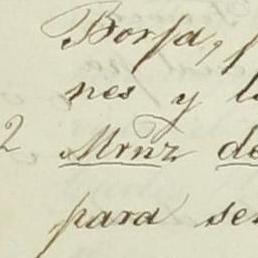 Borja,
nes y
2 Mrnz de
para